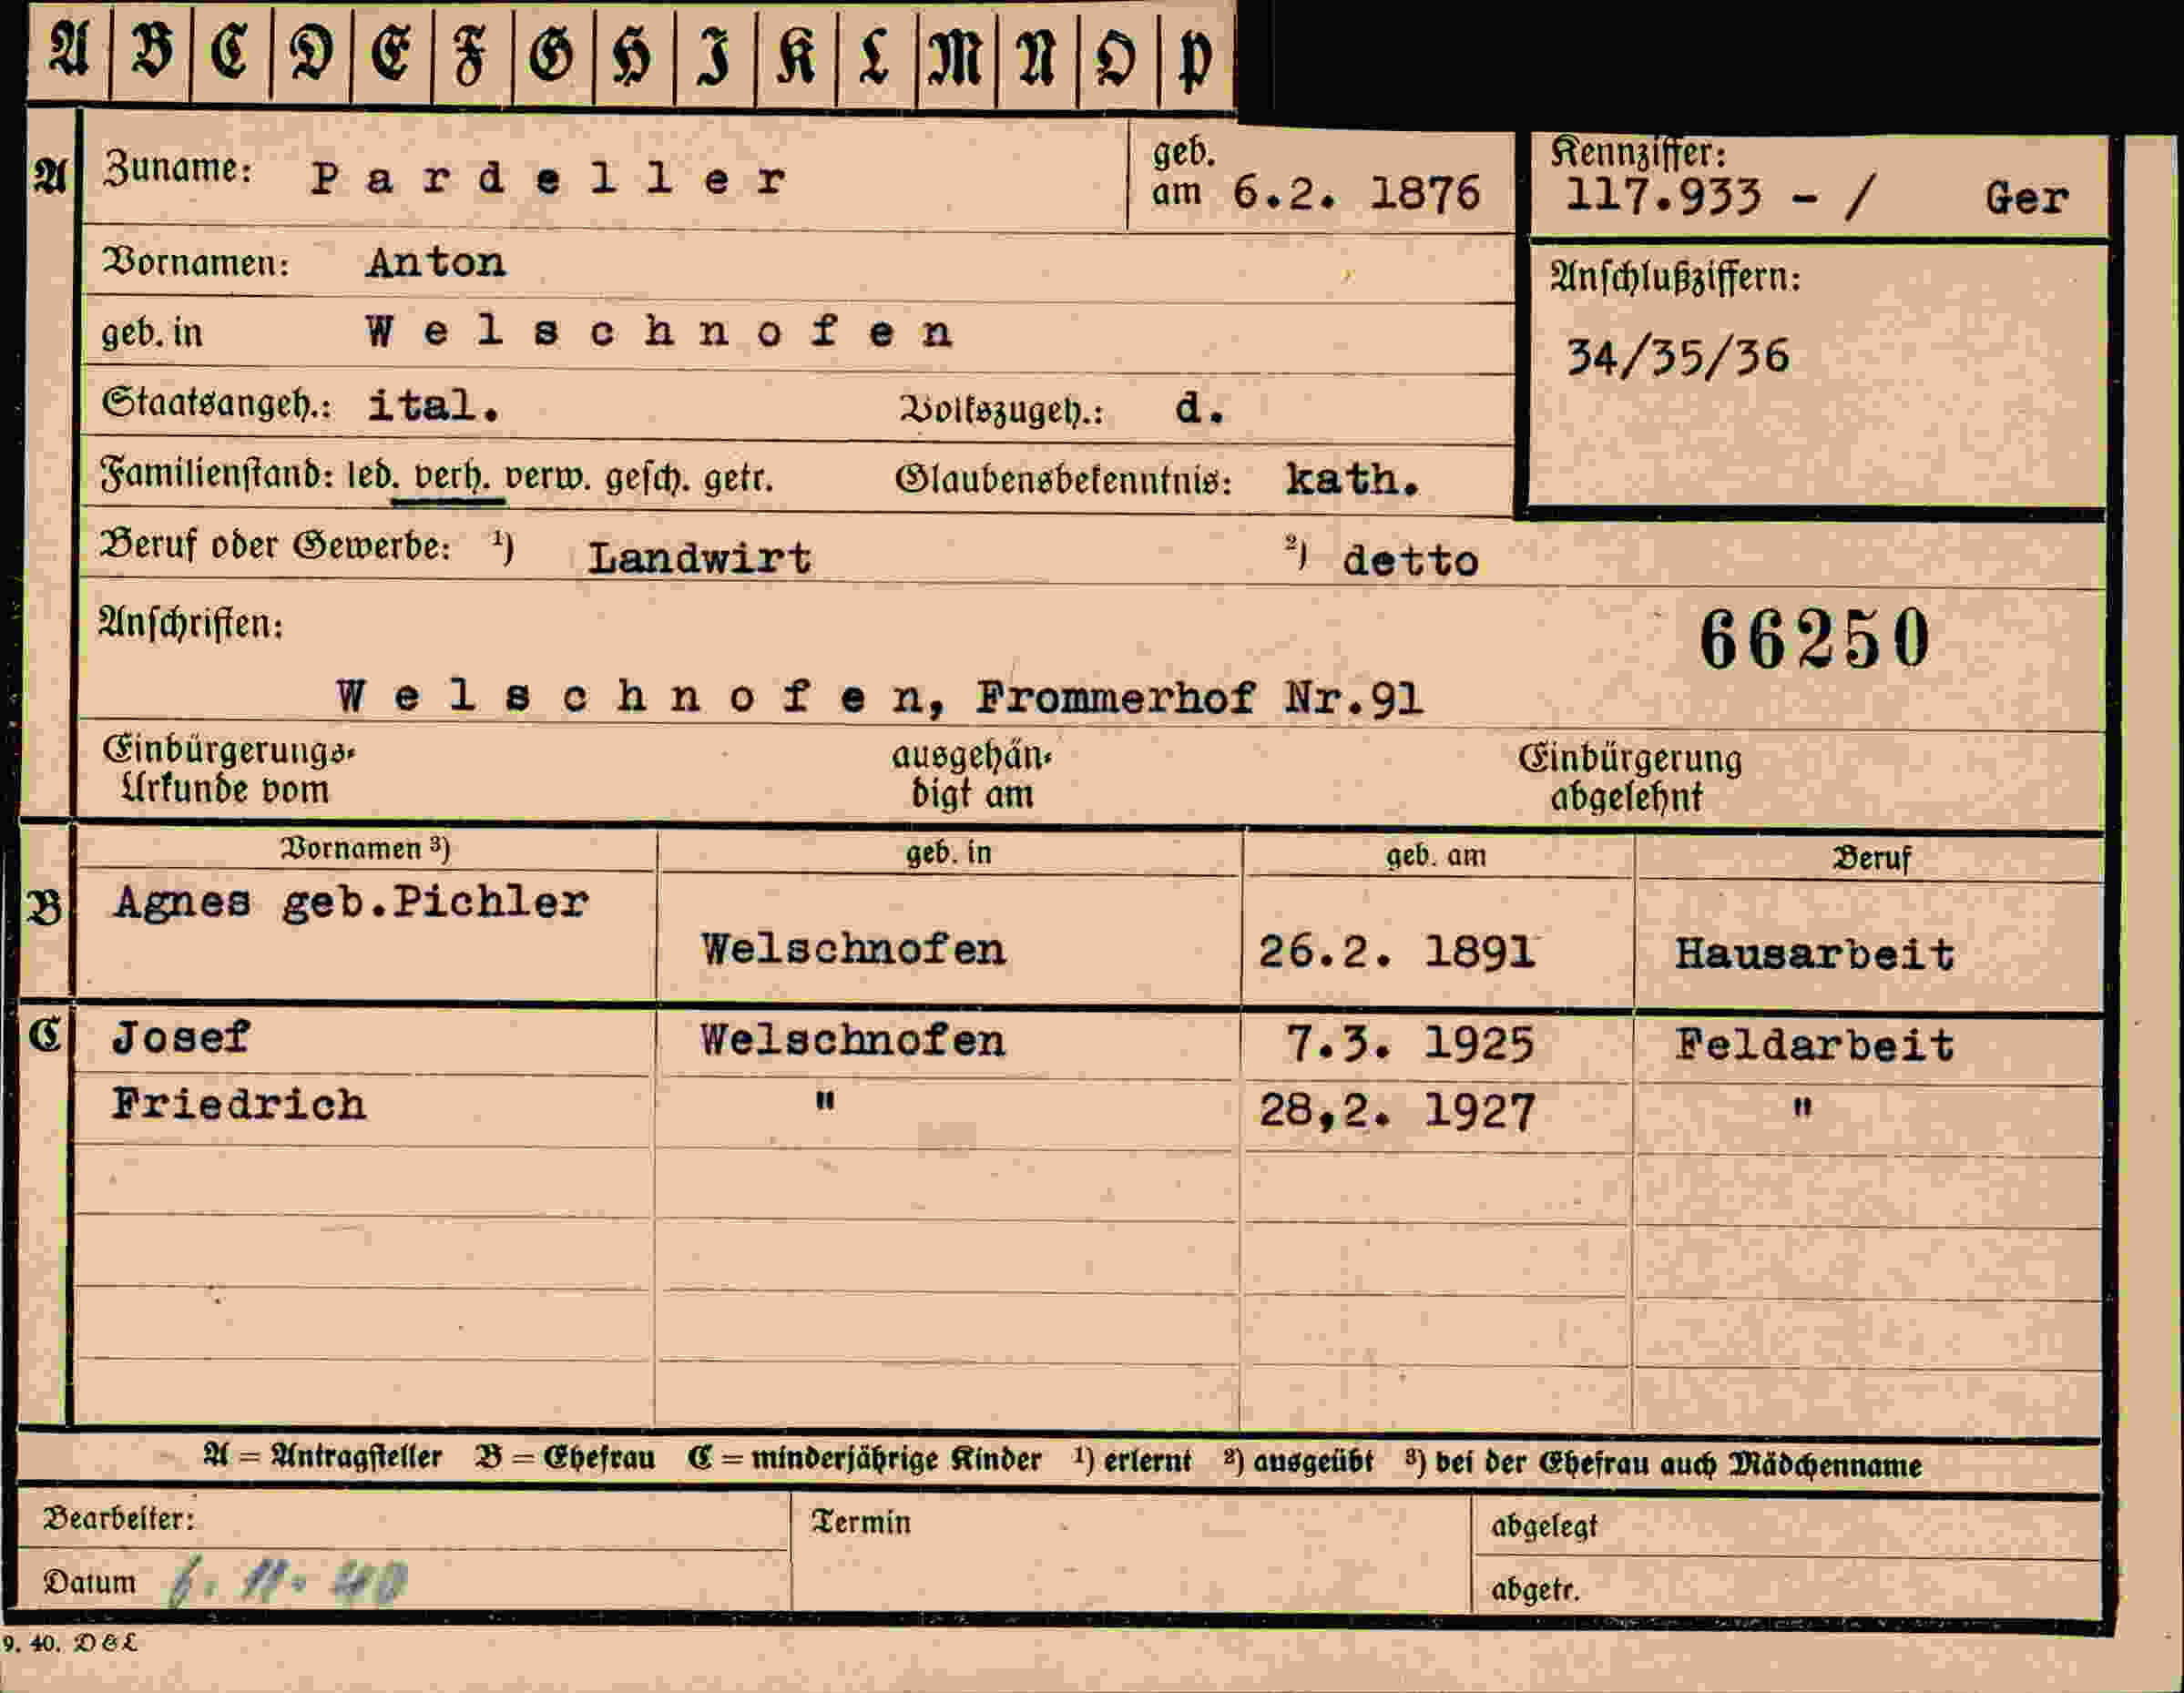 A B C D E F G H I K L M N O P
A Zuname: Pardeller geb. am 6.2. 1876 Kennziffer: 117.933 - / Ger
Vornamen: Anton
Anschlußziffern:
geb. in Welschnofen
34/35/36
Staatsangeh.: ital. Volkszugeh.: d.
Familienstand: led. verh. verw. gesch. getr. Glaubensbekenntnis: kath.
Beruf oder Gewerbe: ¹) Landwirt ²) detto
Anschriften:
66250
Welschnofen, Frommerhof Nr.91
Einbürgerungs- ausgehän- Einbürgerung
Urkunde vom digt am abgelehnt
Vornamen ³) geb. in geb. am Beruf
B Agnes geb.Pichler
Welschnofen 26.2. 1891 Hausarbeit
C Josef Welschnofen 7.3. 1925 Feldarbeit
Friedrich " 28,2. 1927 "
A = Antragsteller B = Ehefrau C = minderjährige Kinder ¹) erlernt ²) ausgeübt ³) bei der Ehefrau auch Mädchenname
Bearbeiter: Termin abgelegt
Datum 6. 11. 40 abgetr.
9. 40. D & L